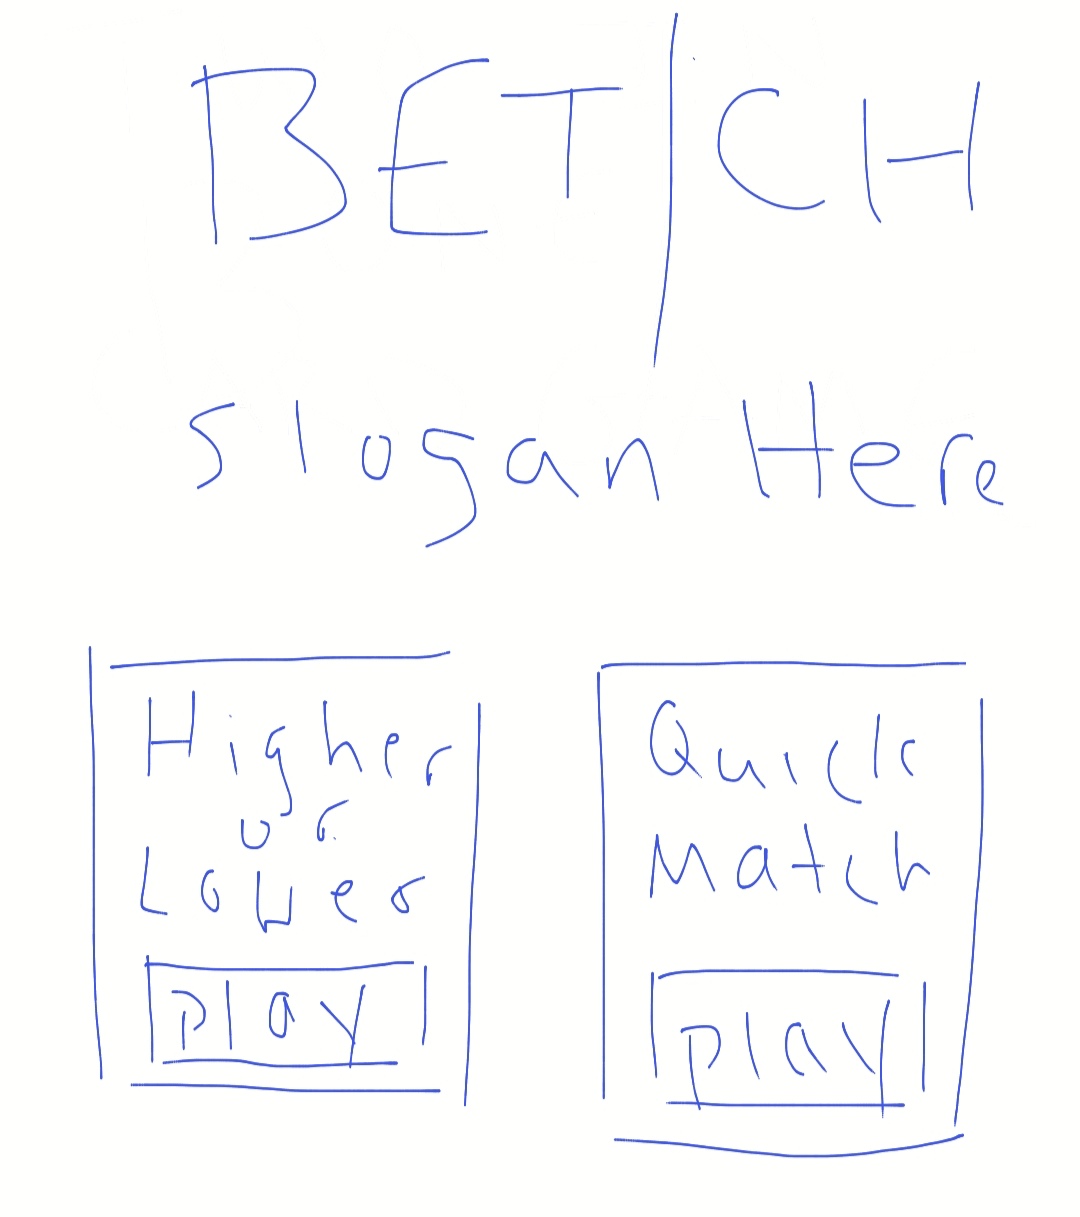 BET/CH
Slogan Here
Higher
or
Lower
Play
Quick
Match
Play